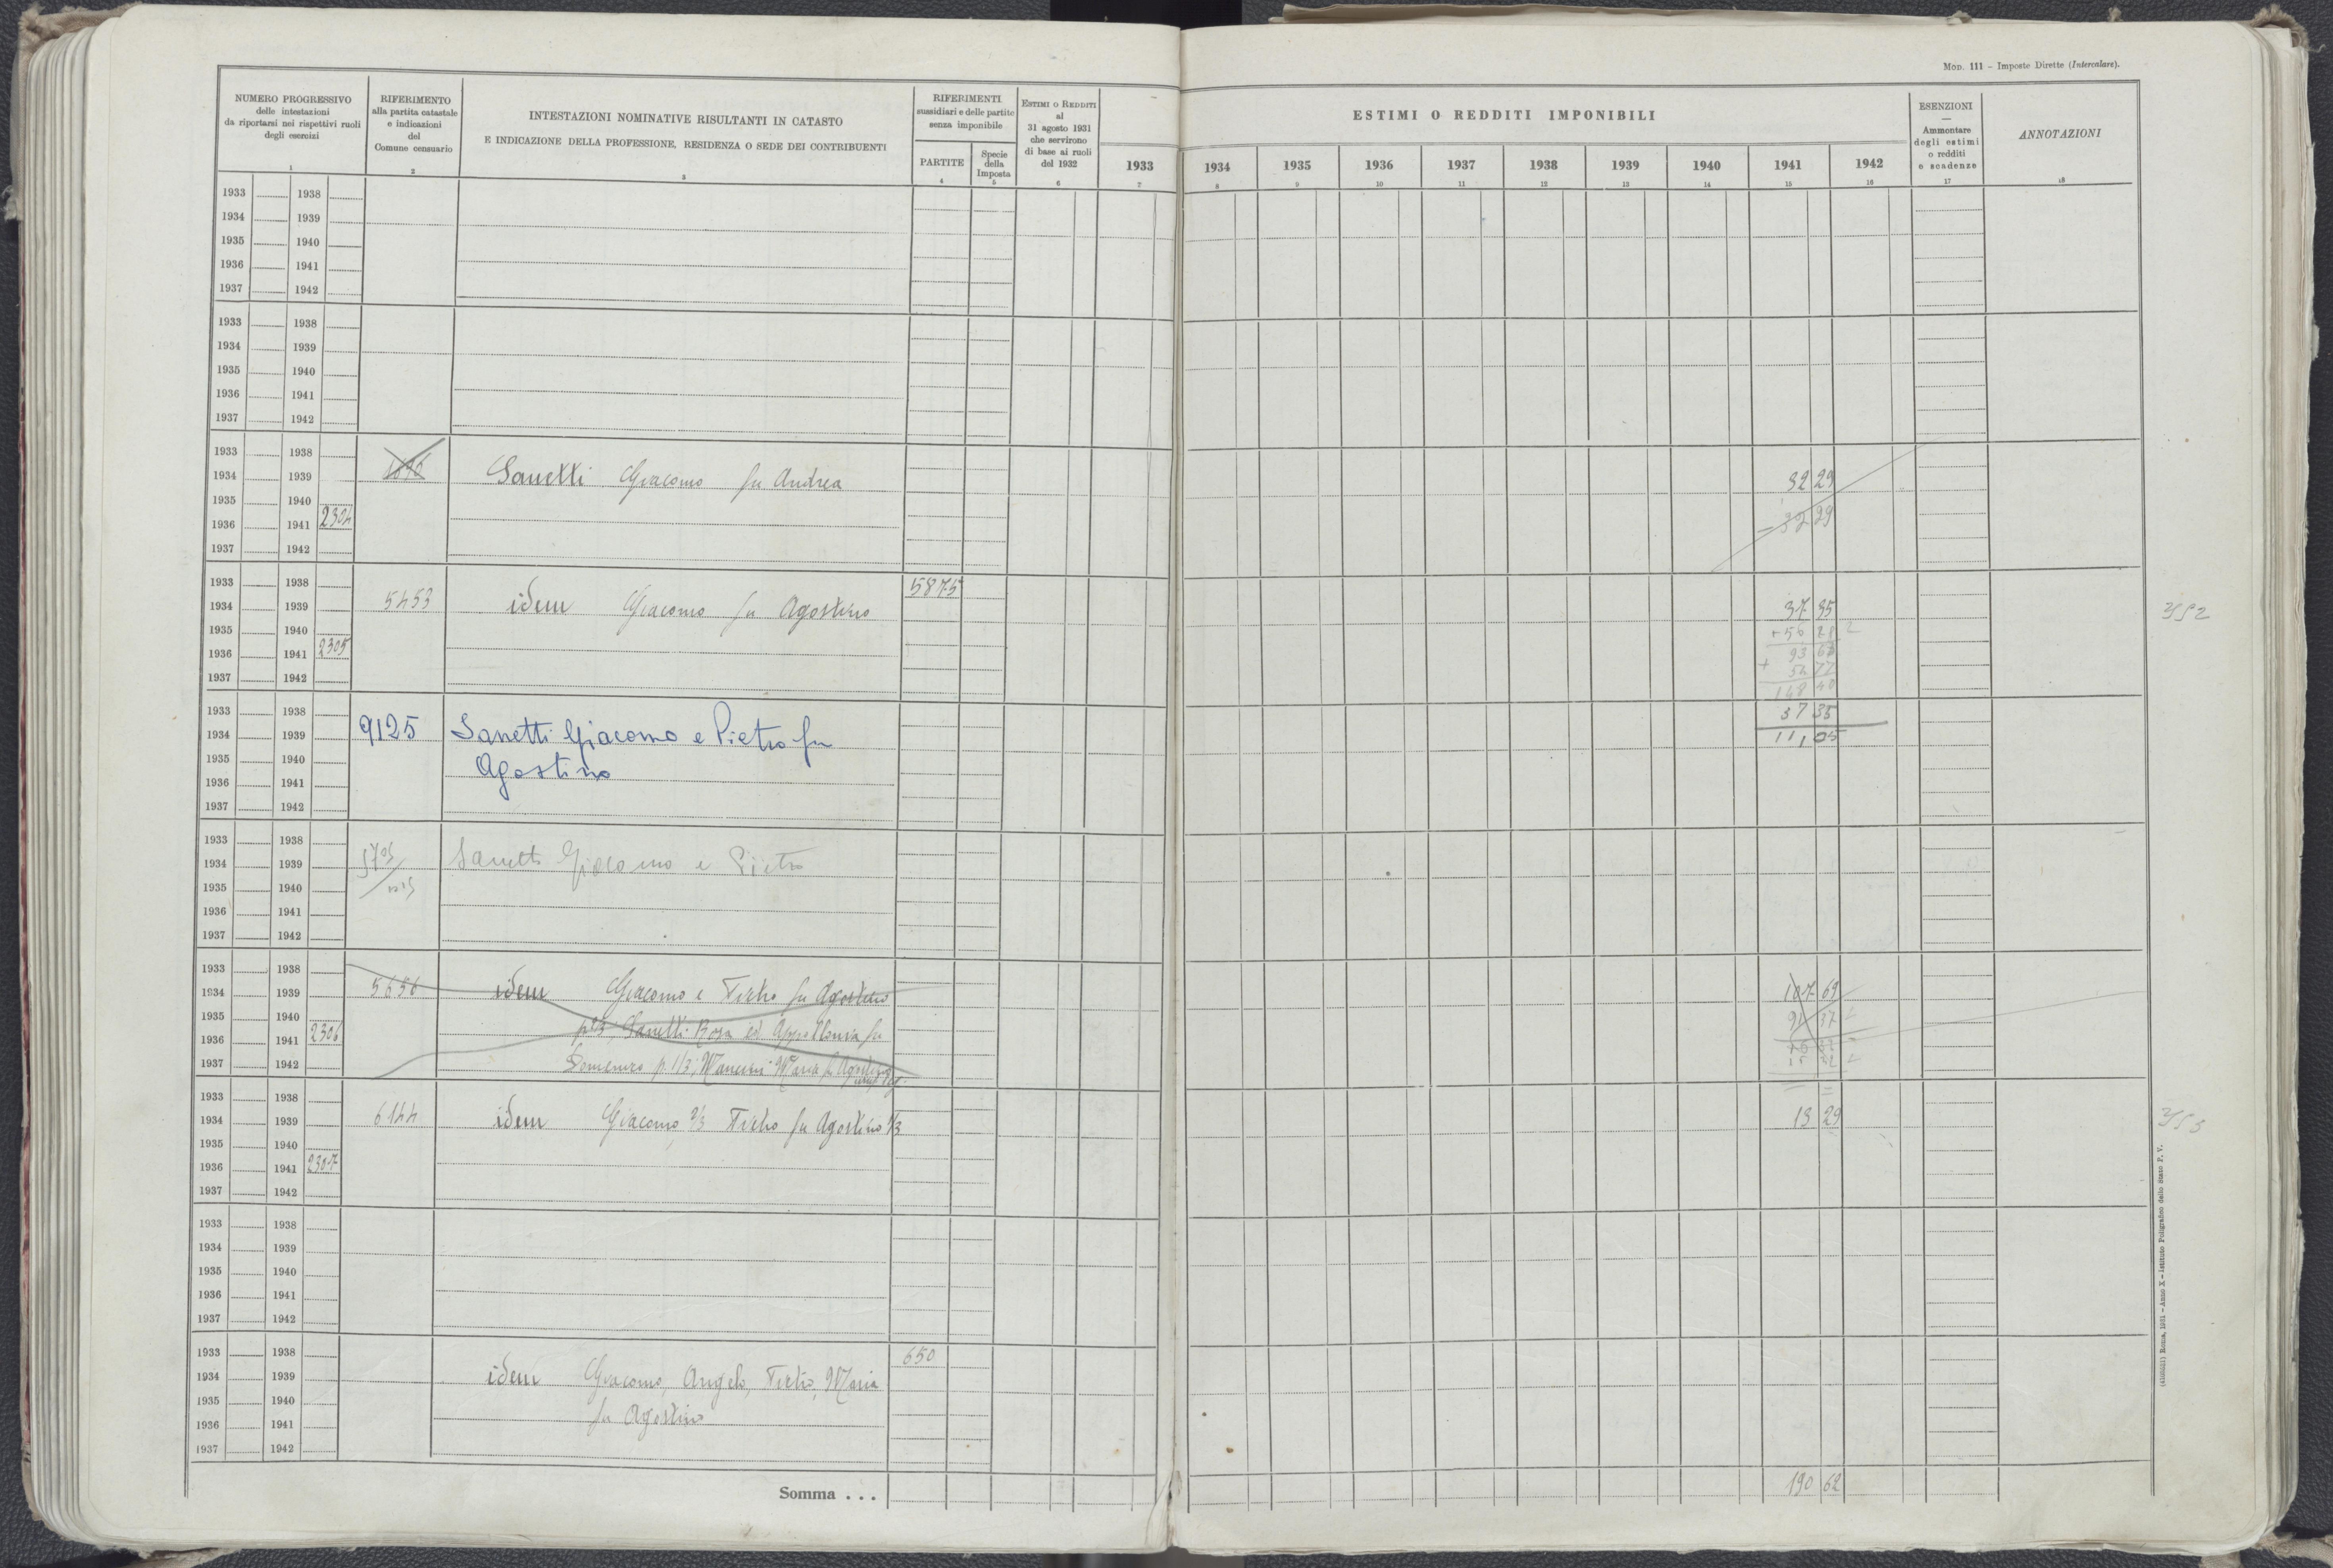 Mod. 111 – Imposte Dirette (Intercalare).
NUMERO PROGRESSIVO
delle intestazioni
da riportarsi nei rispettivi ruoli
degli esercizi
1
RIFERIMENTO
alla partita catastale
e indicazioni
del
Comune censuario
2
INTESTAZIONI NOMINATIVE RISULTANTI IN CATASTO
E INDICAZIONE DELLA PROFESSIONE, RESIDENZA O SEDE DEI CONTRIBUENTI
3
RIFERIMENTI
sussidiari e delle partite
senza imponibile
PARTITE
4
Specie
della
Imposta
5
ESTIMI O REDDITI
al
31 agosto 1931
che servirono
di base ai ruoli
del 1932
6
1933
7
ESTIMI O REDDITI IMPONIBILI
1934 1935 1936 1937 1938 1939 1940 1941 1942
8 9 10 11 12 13 14 15 16
ESENZIONI
—
Ammontare
degli estimi
o redditi
e scadenze
17
ANNOTAZIONI
18
1933 1938
1934 1939
1935 1940
1936 1941
1937 1942
1933 1938
1934 1939
1935 1940
1936 1941
1937 1942
1933 1938
1934 1939 Sanetti Giacomo fu Andrea 32 29
1935 1940
1936 1941 2304 – 32 29
1937 1942
1933 1938 5875
1934 1939 5453 idem Giacomo fu Agostino 37 35 352
1935 1940 + 56 28 2
1936 1941 2305 93 63
+ 54 77
1937 1942 148 40
1933 1938 37 35
1934 1939 9125 Sanetti Giacomo e Pietro fu 11,05
1935 1940 Agostino
1936 1941
1937 1942
1933 1938
1934 1939 Sanetti Giacomo e Pietro
1935 1940
1936 1941
1937 1942
1933 1938
1934 1939 5656 idem Giacomo e Pietro fu Agostino 107 69
1935 1940 Sanetti Rosa ed Appollonia fu 91 37
1936 1941 2306
1937 1942 Domenico p. 1/3; Mancini Maria fu Agostino
1933 1938
1934 1939 6144 idem Giacomo 2/3 Pietro fu Agostino 1/3 13 29 353
1935 1940
1936 1941 2307
1937 1942
1933 1938
1934 1939
1935 1940
1936 1941
1937 1942
1933 1938 650
1934 1939 idem Giacomo, Angelo, Pietro, Maria
1935 1940
1936 1941 fu Agostino
1937 1942
Somma . . . 190 62
Roma, 1931 – Anno X – Istituto Poligrafico dello Stato P. V.